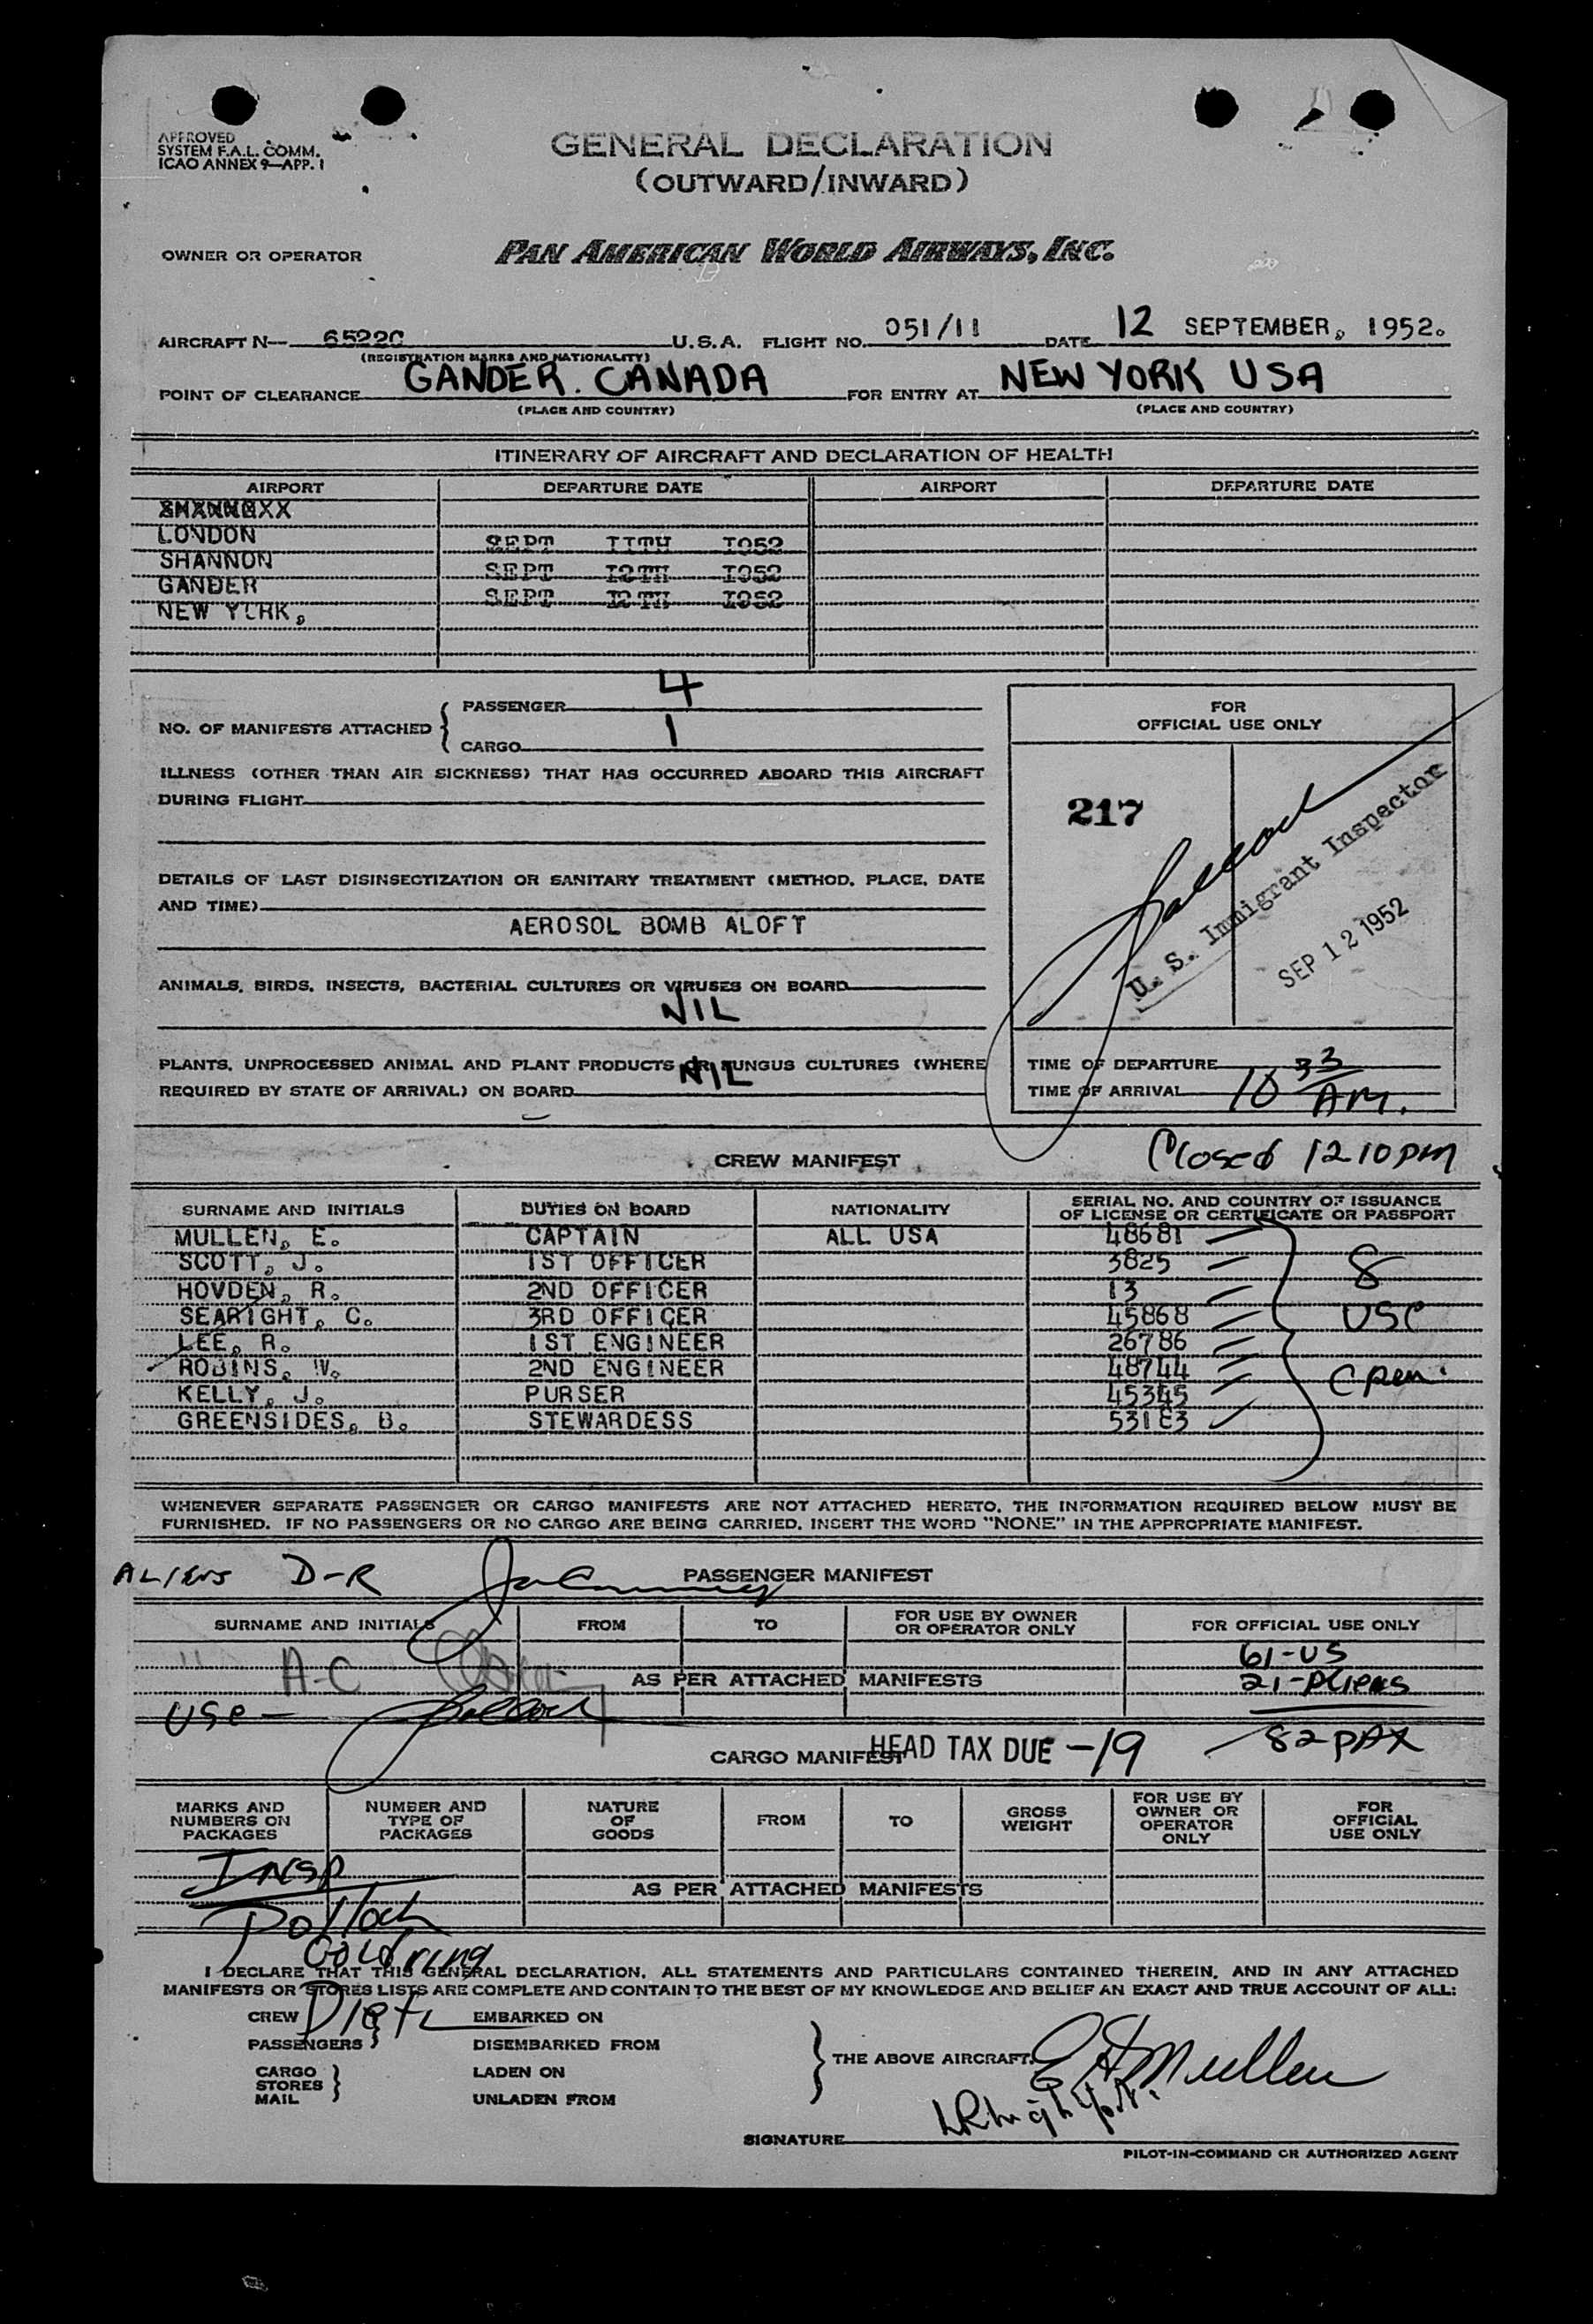 APPROVED
SYSTEM F.A.L. COMM.
ICAO ANNEX 9—APP. 1
GENERAL DECLARATION
(OUTWARD/INWARD)
OWNER OR OPERATOR PAN AMERICAN WORLD AIRWAYS, INC.
AIRCRAFT N— 6522C U.S.A. FLIGHT NO. 051/11 DATE 12 SEPTEMBER, 1952.
(REGISTRATION MARKS AND NATIONALITY)
POINT OF CLEARANCE GANDER. CANADA FOR ENTRY AT NEW YORK USA
(PLACE AND COUNTRY) (PLACE AND COUNTRY)
ITINERARY OF AIRCRAFT AND DECLARATION OF HEALTH
AIRPORT DEPARTURE DATE AIRPORT DEPARTURE DATE
LONDON SEPT 11TH 1952
SHANNON SEPT 12TH 1952
GANDER SEPT 12TH 1952
NEW YORK,
NO. OF MANIFESTS ATTACHED { PASSENGER 4
CARGO 1
ILLNESS (OTHER THAN AIR SICKNESS) THAT HAS OCCURRED ABOARD THIS AIRCRAFT
DURING FLIGHT
DETAILS OF LAST DISINSECTIZATION OR SANITARY TREATMENT (METHOD, PLACE, DATE
AND TIME)
AEROSOL BOMB ALOFT
ANIMALS, BIRDS, INSECTS, BACTERIAL CULTURES OR VIRUSES ON BOARD
NIL
PLANTS, UNPROCESSED ANIMAL AND PLANT PRODUCTS OR FUNGUS CULTURES (WHERE
REQUIRED BY STATE OF ARRIVAL) ON BOARD NIL
FOR
OFFICIAL USE ONLY
217
U. S. Immigrant Inspector
SEP 12 1952
TIME OF DEPARTURE
TIME OF ARRIVAL 10 33 AM.
Closed 1210 PM
CREW MANIFEST
SURNAME AND INITIALS DUTIES ON BOARD NATIONALITY SERIAL NO. AND COUNTRY OF ISSUANCE
OF LICENSE OR CERTIFICATE OR PASSPORT
MULLEN, E. CAPTAIN ALL USA 48681
SCOTT, J. 1ST OFFICER 3825
HOVDEN, R. 2ND OFFICER 13
SEARIGHT, C. 3RD OFFICER 45868
LEE, R. 1ST ENGINEER 26786
ROBINS, W. 2ND ENGINEER 48744
KELLY, J. PURSER 45345
GREENSIDES, B. STEWARDESS 53183
8
USC
WHENEVER SEPARATE PASSENGER OR CARGO MANIFESTS ARE NOT ATTACHED HERETO, THE INFORMATION REQUIRED BELOW MUST BE
FURNISHED. IF NO PASSENGERS OR NO CARGO ARE BEING CARRIED, INSERT THE WORD "NONE" IN THE APPROPRIATE MANIFEST.
ALIENS D-R
PASSENGER MANIFEST
SURNAME AND INITIALS FROM TO FOR USE BY OWNER
OR OPERATOR ONLY FOR OFFICIAL USE ONLY
" A-C
61-US
AS PER ATTACHED MANIFESTS 21-Aliens
USC - Pollock
82 PAX
CARGO MANIFEST HEAD TAX DUE -19
MARKS AND
NUMBERS ON
PACKAGES
NUMBER AND
TYPE OF
PACKAGES
NATURE
OF
GOODS
FROM
TO
GROSS
WEIGHT
FOR USE BY
OWNER OR
OPERATOR
ONLY
FOR
OFFICIAL
USE ONLY
INSP
AS PER ATTACHED MANIFESTS
Pollock
Goldring
Dietz
I DECLARE THAT THIS GENERAL DECLARATION, ALL STATEMENTS AND PARTICULARS CONTAINED THEREIN, AND IN ANY ATTACHED
MANIFESTS OR STORES LISTS ARE COMPLETE AND CONTAIN TO THE BEST OF MY KNOWLEDGE AND BELIEF AN EXACT AND TRUE ACCOUNT OF ALL:
CREW EMBARKED ON
PASSENGERS } DISEMBARKED FROM
CARGO LADEN ON
STORES }
MAIL UNLADEN FROM
} THE ABOVE AIRCRAFT. E H Mullen
SIGNATURE
PILOT-IN-COMMAND OR AUTHORIZED AGENT